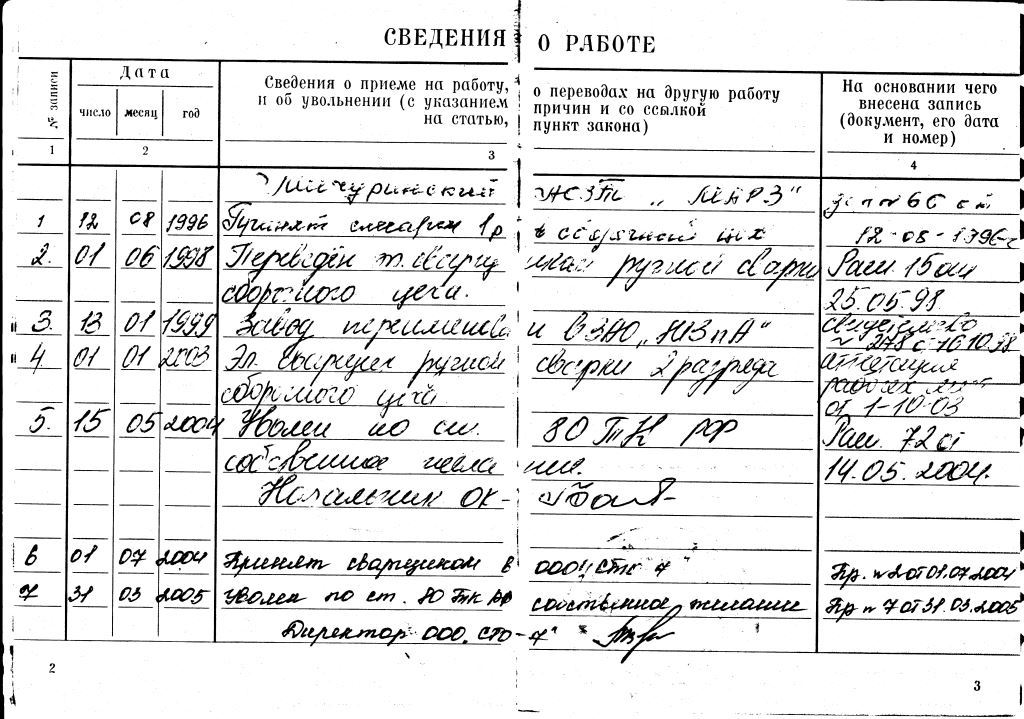 СВЕДЕНИЯ О РАБОТЕ
№ записи
Дата
число месяц год
Сведения о приеме на работу, о переводах на другую работу
и об увольнении (с указанием причин и со ссылкой
на статью, пункт закона)
На основании чего
внесена запись
(документ, его дата
и номер)
1 2 3 4
Мичуринский
1 12 08 1996 Принят слесарем 1 р в сборочный цех 12-08-1996г
2. 01 06 1998 Переведён эл. сварщи ручной сварки Расп. 15 от
сборочного цеха. 25.05.98.
3. 13 01 1999 Завод переименова н в ЗАО свидетельство
№ 278 от 16.10.98
4. 01 01 2003 Эл. сварщик ручной сварки 2 разряда аттестация
сборочного цеха рабочих мест
от 1-10-03
5. 15 05 2004 Уволен по ст. 80 ТК РФ Расп. 72 от
собственное жела ние. 14.05.2004.
Начальник ОК-
6 01 07 2004 Принят сварщиком в ООО „СТО 7" Пр. №2 от 01.07.2004
7 31 03 2005 Уволен по ст. 80 ТК РФ собственное желание Пр № 7 от 31.03.2005
Директор ООО. СТО-7"
2
3